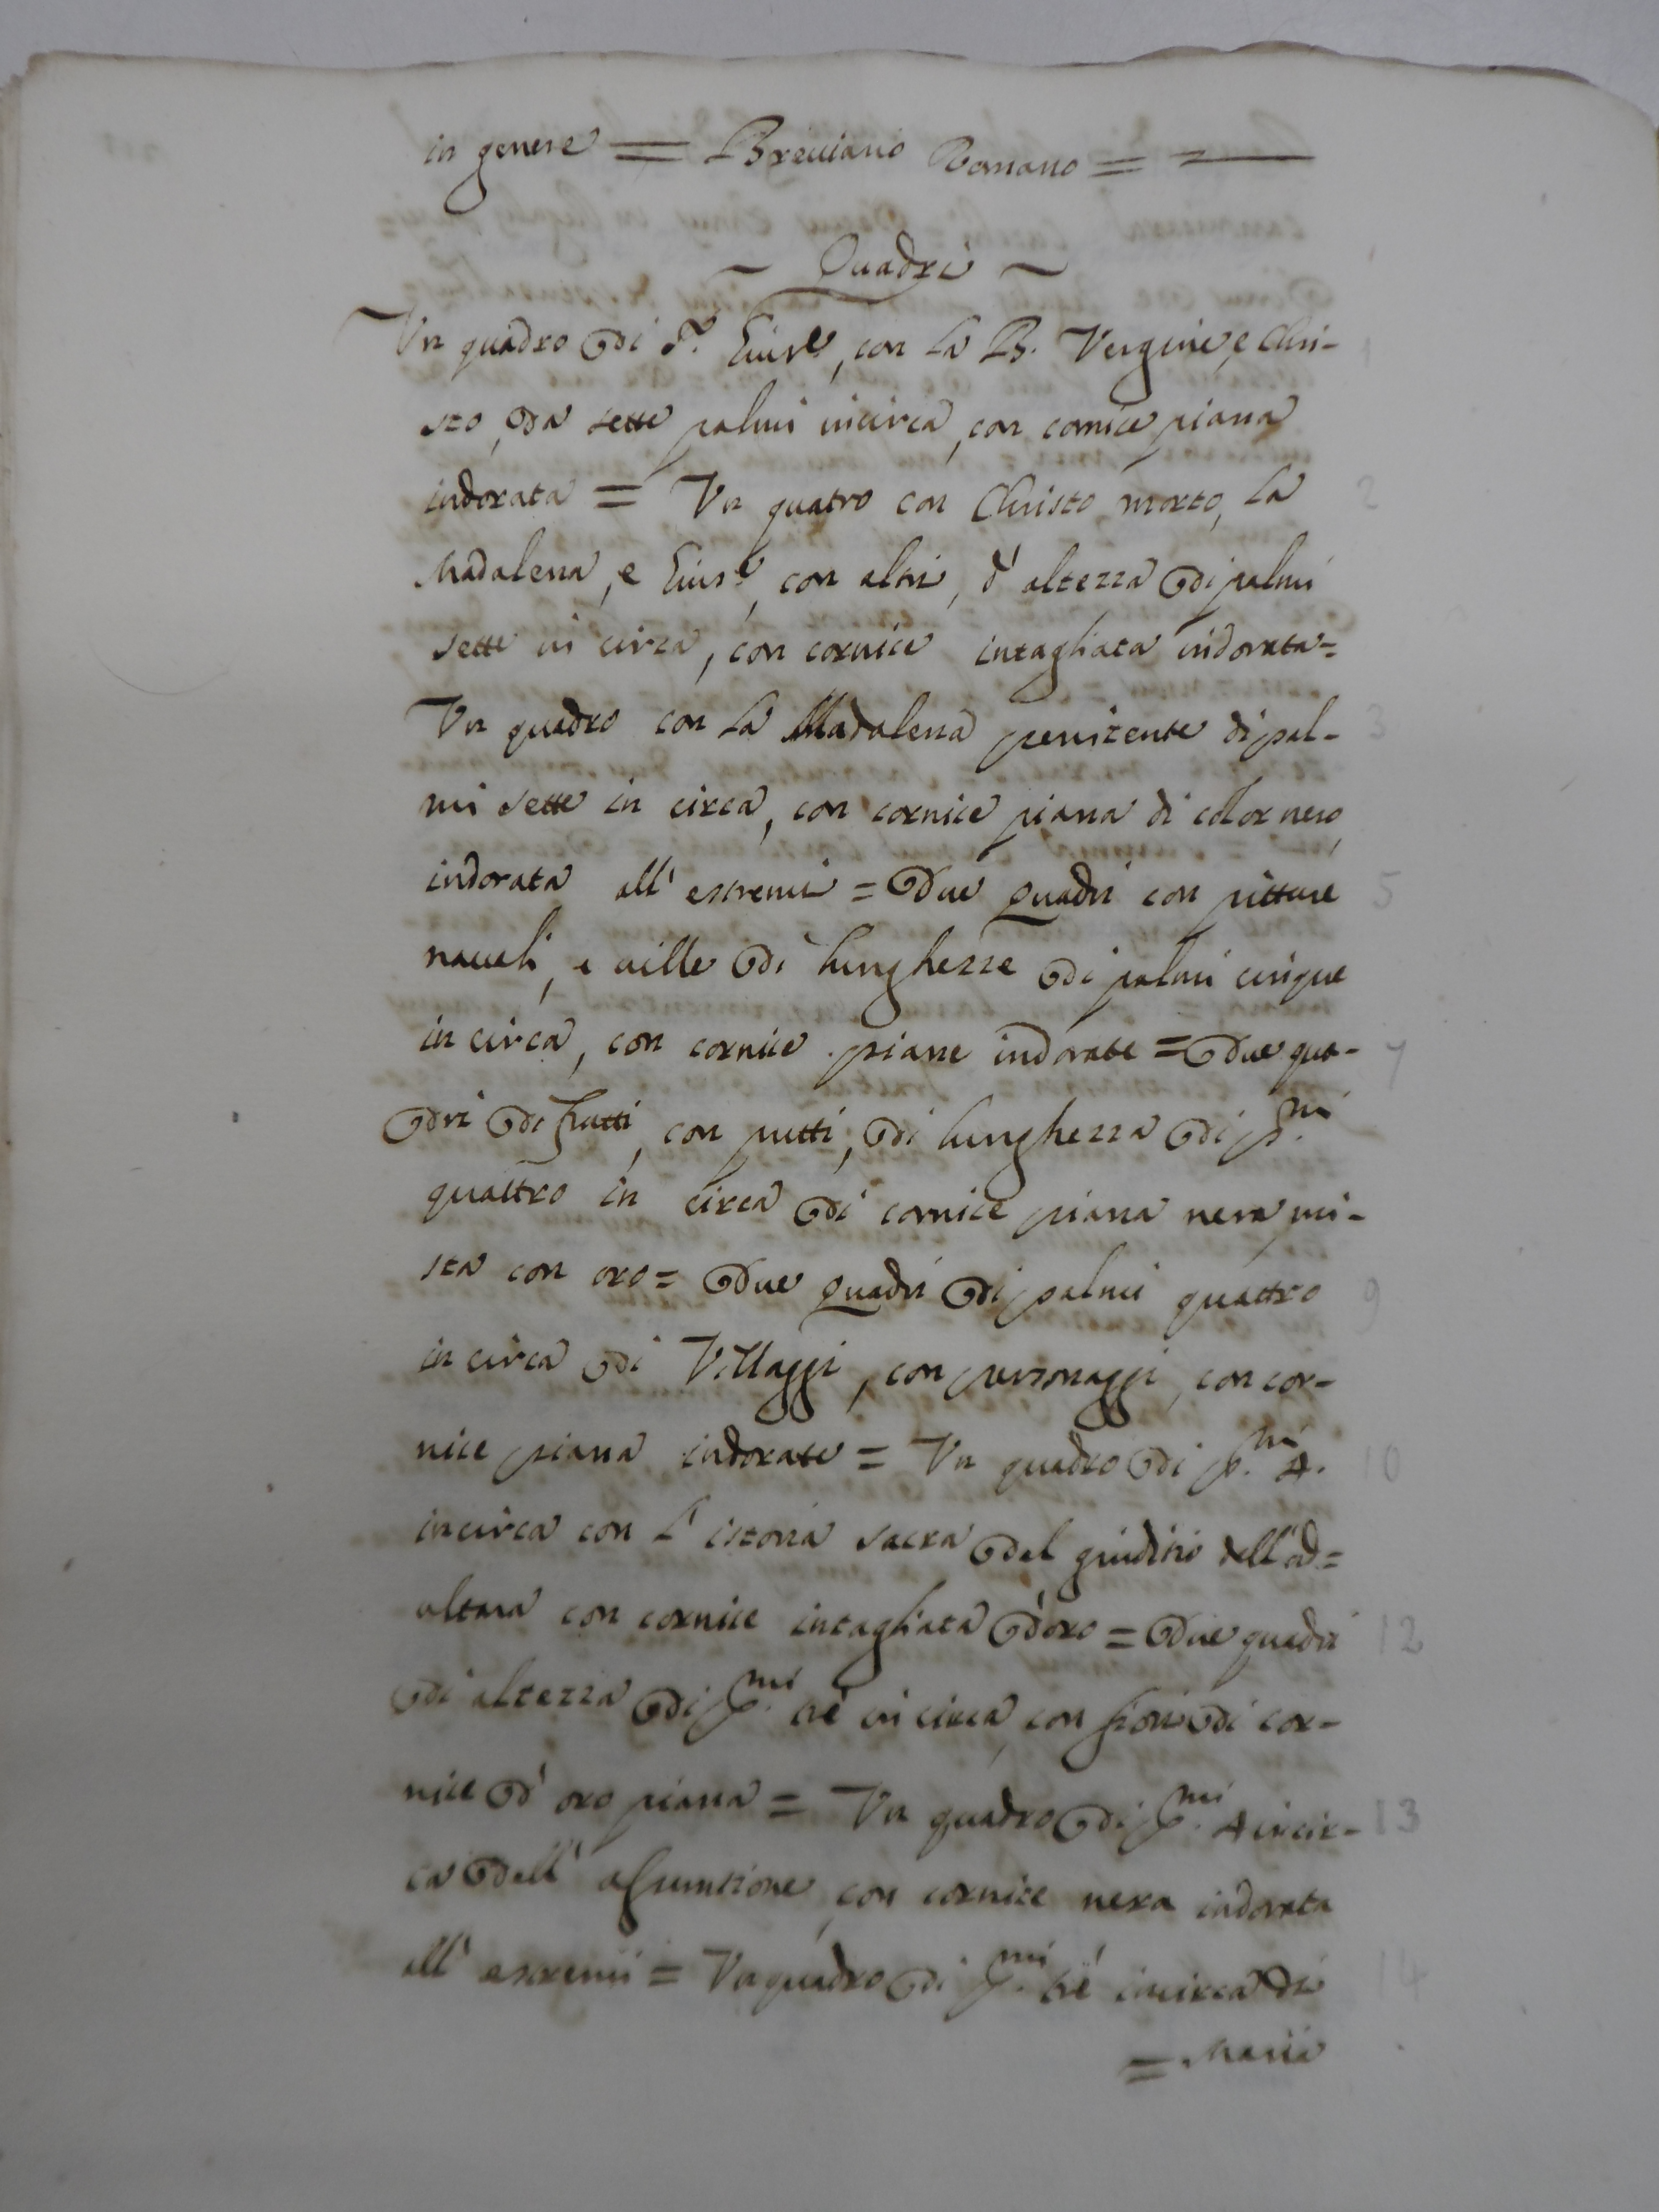 in genere = Breviario Romano =
~ Quadri ~
Un quadro di S. Gius.e, con la B. Vergine, e Chri- 1
sto, da sette palmi incirca, con cornice piana
indorata = Un quatro con Christo morto, la 2
Madalena, e Gius.e, con altri, d'altezza di palmi
sette in circa, con cornice intagliata indorata=
Un quadro con la Madalena penitente di pal- 3
mi sette in circa, con cornice piana di color nero,
indorata all'estremi = Due quadri con pitture 5
navali, e ville di lunghezze di palmi cinque
in circa, con cornice piane indorate = Due qua- 7
dri di frutti, con putti, di lunghezza di p.mi
quattro in circa di cornice piana nera mi-
sta con oro = Due quadri di palmi quattro 9
in circa di Villaggi, con personaggi, con cor-
nice piana indorate = Un quadro di p.mi 4. 10
incirca con l'istoria sacra del giuditio dell'ad=
ultara con cornice intagliata d'oro = Due quadri 12
di altezza di p.mi tré in circa, con fiori di cor-
nice d'oro piana = Un quadro di p.mi 4 incir- 13
ca dell'assuntione, con cornice nera indorata
all'estremi = Un quadro di p.mi tré incirca di 14
=